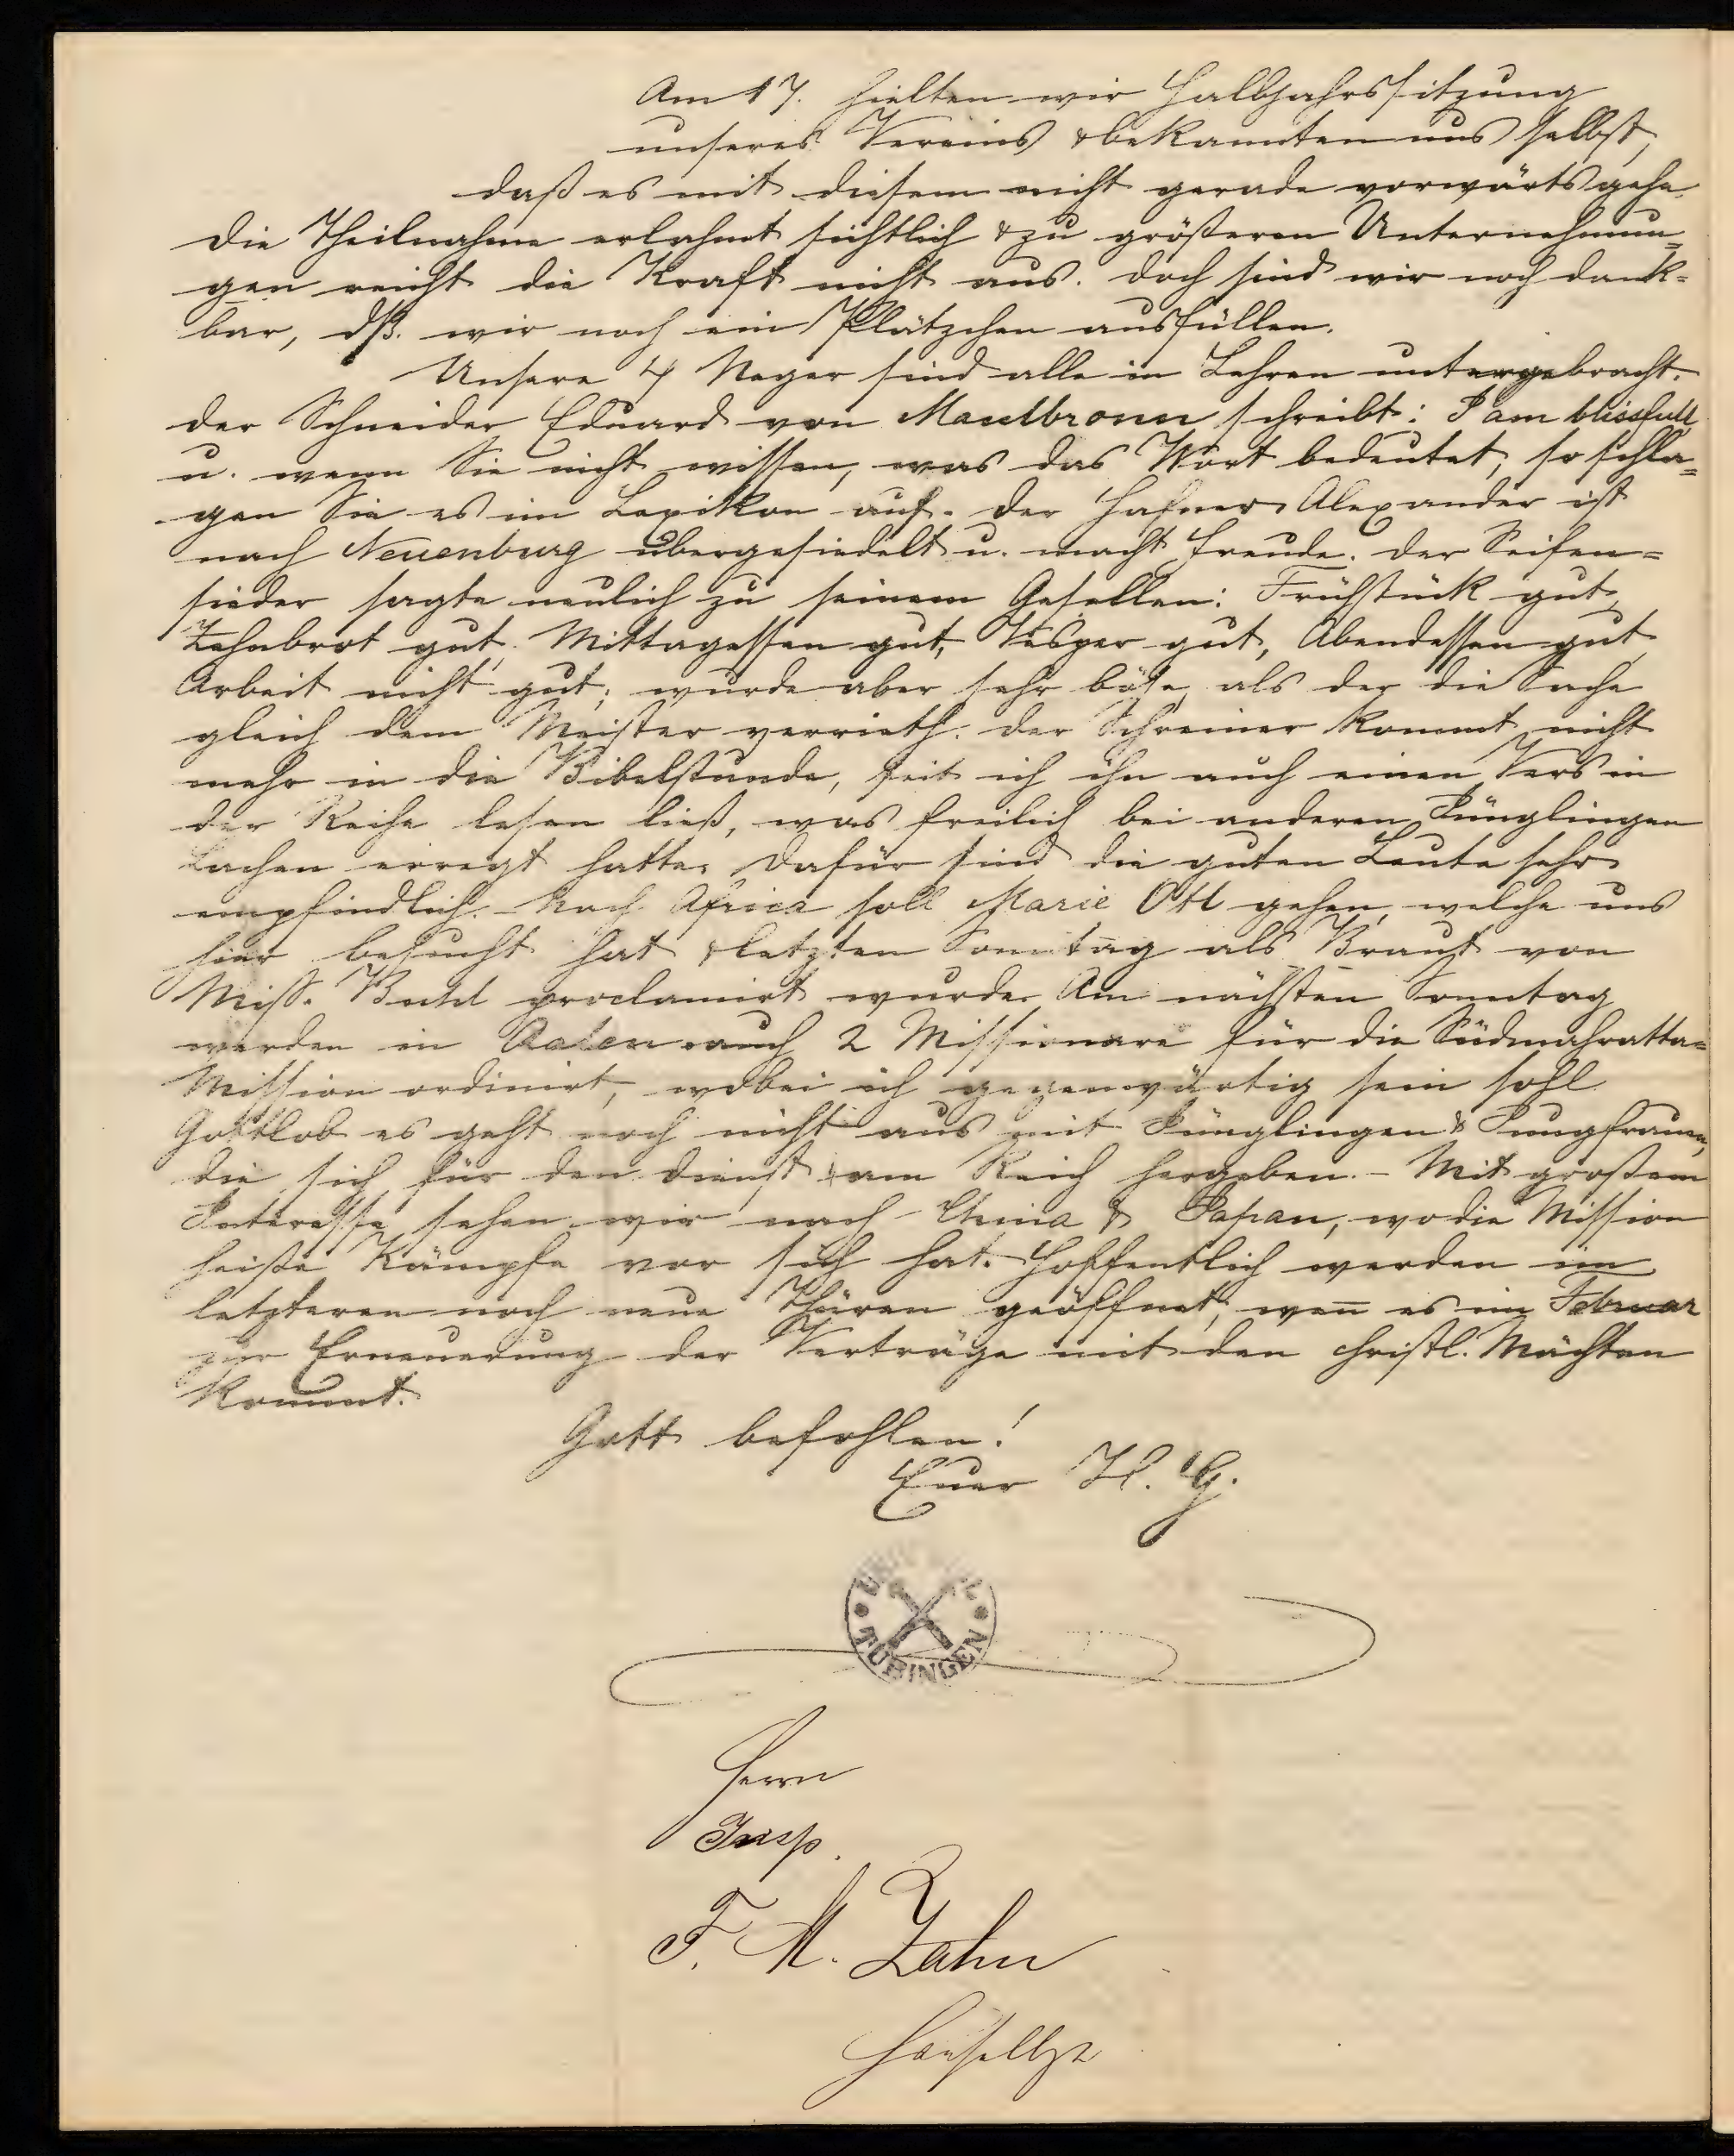 Am 17. hielten wir Halbjahrssitzung
unseres Vereins & bekannten uns selbst,
daß es mit diesem nicht gerade vorwärts gehe.
Die Theilnahme erlahmt sichtlich & zu größeren Unternehmun=
gen reicht die Kraft nicht aus. Doch sind wir noch dank=
bar, dß. wir noch ein Plätzchen ausfüllen.
Unsere 4 Neger sind alle in Lehren untergebracht.
Der Schneider Eduard von Maulbronn schreibt: I am blissfull,
u. wenn Sie nicht wissen, was das Wort bedeutet, so schla=
gen Sie es im Lexikon auf. Der Hafner Alexander ist
nach Neuenburg übergesiedelt u. macht Freude. Der Seifen=
sieder sagte neulich zu seinem Gesellen: Frühstück gut,
Zehnbrot gut, Mittagessen gut, Vesper gut, Abendessen gut
Arbeit nicht gut; wurde aber sehr böse, als der die Sache
gleich dem Meister verrieth. Der Schreiner kommt nicht
mehr in die Bibelstunde, seit ich ihn auch einen Vers in
der Reihe lesen ließ, was freilich bei anderen Jünglingen
Lachen erregt hatte. Dafür sind die guten Leute sehr
empfindlich. - Nach Africa soll Marie Ott gehen, welche uns
hier besucht hat & letzten Sonntag als Braut von
Miss. proclamirt wurde. Am nächsten Sonntag
werden in Aalen auch 2 Missionare für die Südmahratta=
Mission ordinirt, wobei ich gegenwärtig sein soll
Gottlob es geht noch nicht aus mit Jünglingen & Jungfrauen,
die sich für den Dienst am Reich hergeben. - Mit großem
Interesse sehen wir nach China & Japan, wo die Mission
heiße Kämpfe vor sich hat. Hoffentlich werden im
letzteren noch neue Thüren geöffnet, wen̄ es im Februar
zur Erneuerung der Verträge mit den christl. Mächten
kommt.
Gott befohlen!
Euer H. G.
TÜBINGEN
Herrn
Insp.
F. M. Zahn